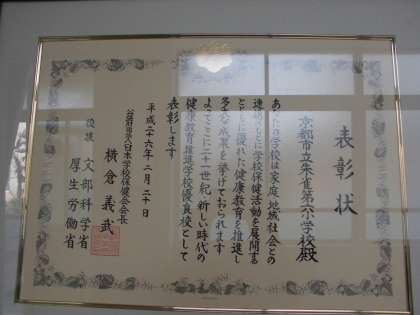 表彰状
京都市立朱雀第六小学校殿
あなたの学校は家庭、地域社会との
連携のもとに学校保健活動を展開する
とともに優れた健康教育を推進し
多大の成果を挙げておられます
よってここに二十一世紀・新しい時代の
健康教育推進学校優良校として
表彰します
平成二十六年二月二十日
公益財団法人日本学校保健会会長
横倉義武
後援 文部科学省
厚生労働省